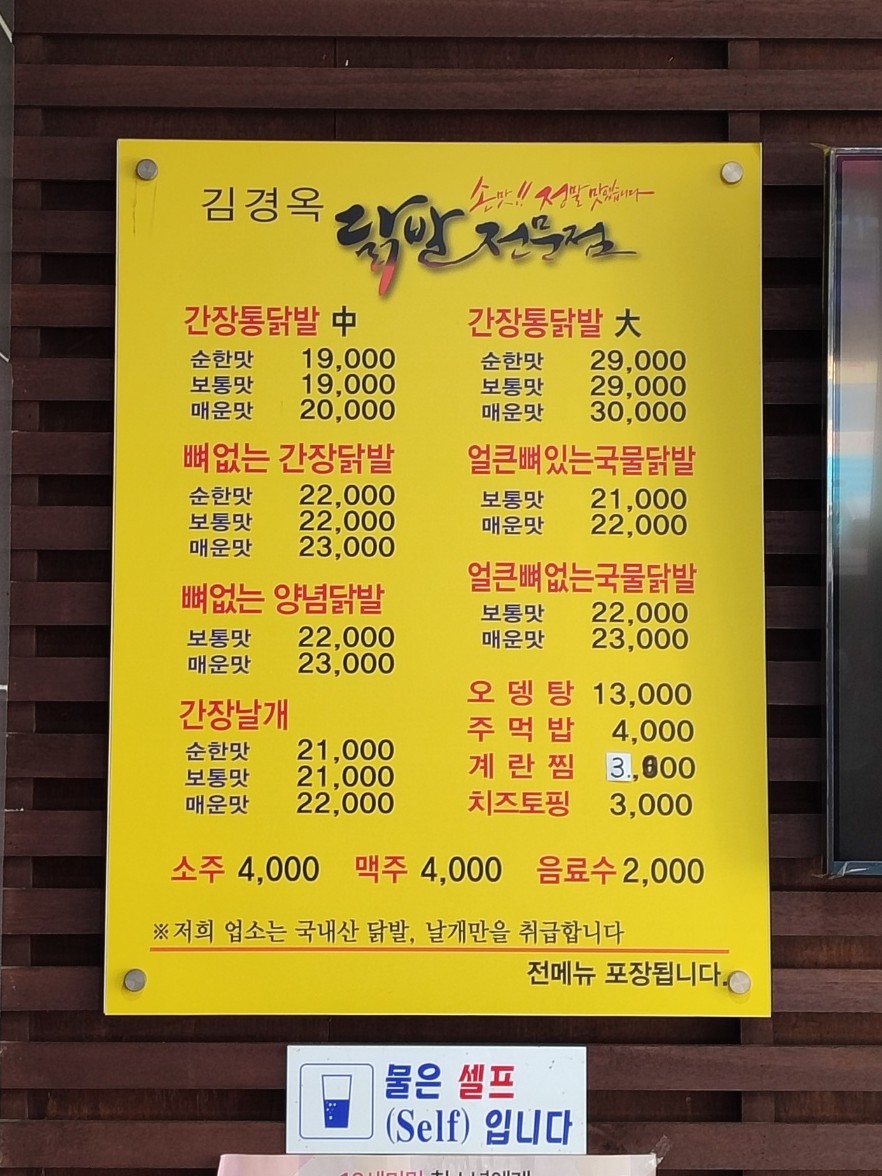 김경옥
손맛!! 정말 맛있습니다
닭발 전문점
간장통닭발 中
순한맛 19,000
보통맛 19,000
매운맛 20,000
뼈없는 간장닭발
순한맛 22,000
보통맛 22,000
매운맛 23,000
뼈없는 양념닭발
보통맛 22,000
매운맛 23,000
간장날개
순한맛 21,000
보통맛 21,000
매운맛 22,000
간장통닭발 大
순한맛 29,000
보통맛 29,000
매운맛 30,000
얼큰뼈있는국물닭발
보통맛 21,000
매운맛 22,000
얼큰뼈없는국물닭발
보통맛 22,000
매운맛 23,000
오뎅탕 13,000
주먹밥 4,000
계란찜
치즈토핑 3,000
소주 4,000 맥주 4,000 음료수 2,000
※저희 업소는 국내산 닭발, 날개만을 취급합니다
전메뉴 포장됩니다.
물은 셀프
(Self) 입니다